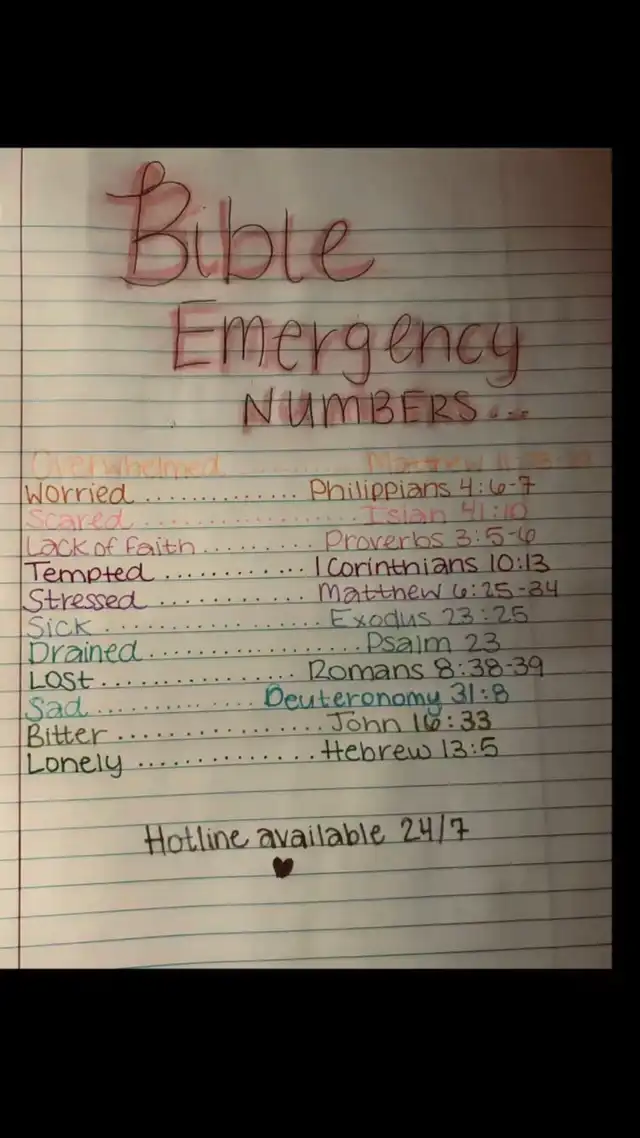 Bible
Emergency
NUMBERS...
Overwhelmed ......... Matthew 11:28-30
Worried ............. Philippians 4:6-7
Scared .................. Isiah 41:10
Lack of Faith......... Proverbs 3:5-6
Tempted ............ 1 Corinthians 10:13
Stressed ............ Matthew 6:25-34
Sick ................... Exodus 23:25
Drained................. Psalm 23
Lost ................ Romans 8:38-39
Sad ............. Deuteronomy 31:8
Bitter .................. John 16:33
Lonely .............. Hebrew 13:5
Hotline available 24/7